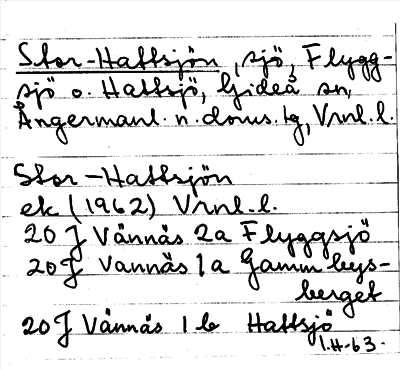 Stor-Hattsjön, sjö, Flygg-
sjö o. Hattsjö, Gideå sn,
Ångermanl. n. doms. tg, Vrnl. l.
Stor-Hattsjön
ek (1962) Vrnl. l.
20 J Vännäs 2a Flyggsjö
20 J Vännäs 1a Gammbys-
berget
20 J Vännäs 1b Hattsjö
1.H-63.